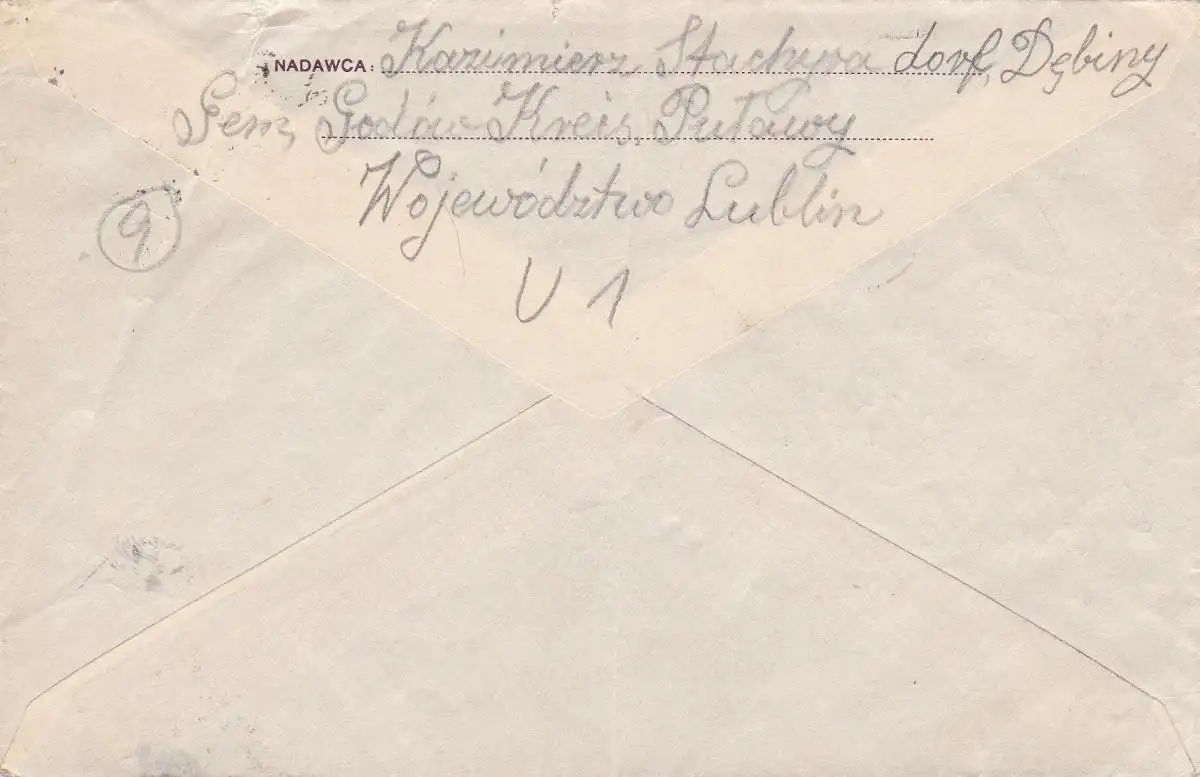 NADAWCA: Kazimierz Stachyra dorf, Dębiny
Gem, Godów Kreis. Puławy
Województwo Lublin
U 1
9